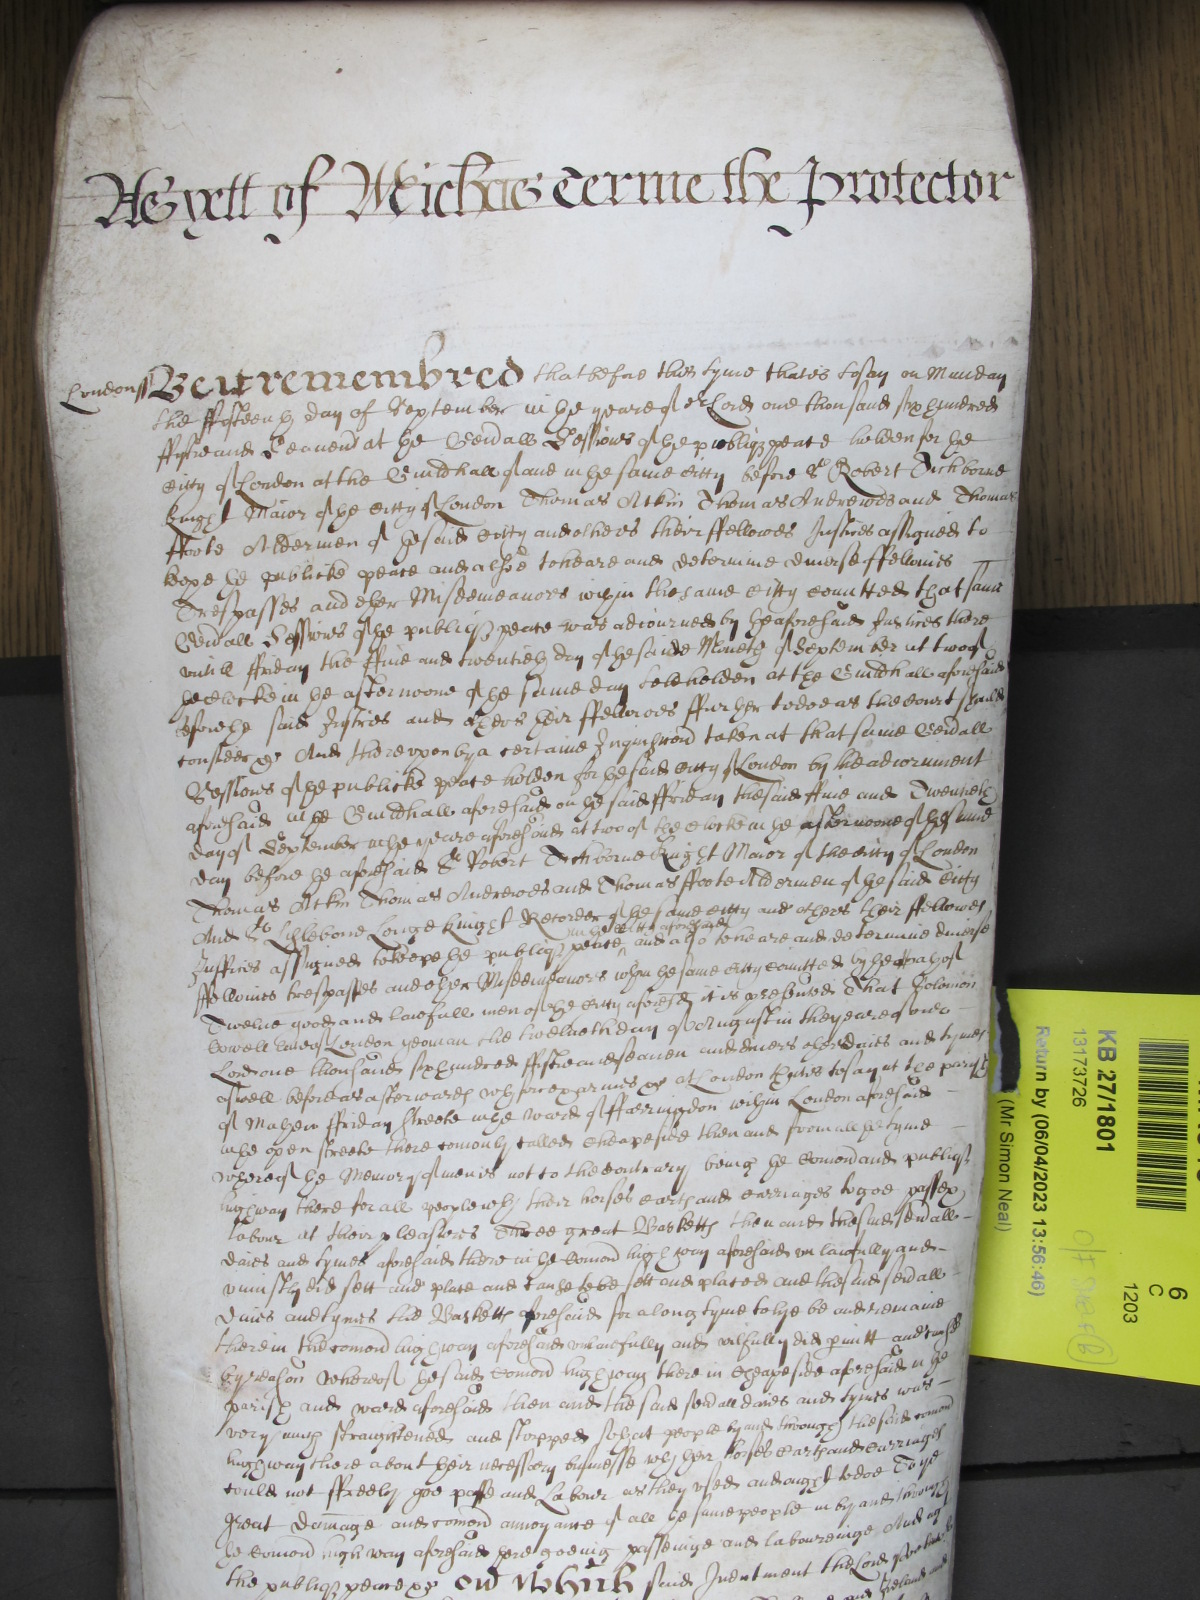 As yett of Michas terme the Protector
London ss Be it remembred that before this tyme that is to say on Munday
the ffifteenth day of September in the yeare of or Lord one thousand six hundred
ffiftie and Seaven at the Gen'all Sessions of the publiq peace holden for the
Citty of London at the Guildhall of and in the same Citty before Sr Robert Tichborne
knight Maior of the Citty of London Thomas Atkin Thomas Andrewes and Thomas
ffoote Aldermen of the said Citty and others their ffellowes Justices assigned to
keepe the publicke peace and alsoe to heare and determine diverse ffellonies
Trespasses and other Misdemeanors within the same Citty comitted that same
Gen'all Sessions of the publiq peace was adiourned by the aforesaid Justices there
untill ffriday the ffive and twentieth day of the said Moneth of September at two of
the Clocke in the afternoone of the same day to be holden at the Guildhall aforesaid
before the said Justices and others their ffellowes ffurther to doe as the Court should
consider &c And thereupon by a certaine Inquisicion taken at that same Gen'all
Sessions of the publicke peace holden for the said Citty of London by the adiornment
aforesaid at the Guildhall aforesaid on the said ffriday the said ffive and Twentieth
day of September in the yeare aforesaid at two of the Clocke in the afternoone of the same
day before the aforesaid Sr Robert Tichborne Knight Maior of the Citty of London
Thomas Atkin Thomas Andrewes and Thomas ffoote Aldermen of the said Citty
And Sr Lislebone Longe Knight Recorder of the same Citty and others their ffellowes
in the Citty aforesaid
Justices assigned to keepe the publiq peace and also to heare and determine diverse
ffellonies trespasses and other Misdemeanors within the same Citty comitted by the oathes of
Twelve good and lawfull men of the Citty aforesd it is presented That Solomon
late of London yeoman the twelveth day of August in the yeare of our
Lord one thousand six hundred ffiftie and seaven and divers other daies and tymes
aswell before as afterwards with force & armes &c at London that is to say at the parish
of Mathew ffriday streete in the Ward of ffarringdon within London aforesaid
in the open streete there comonly called Cheapeside then and from all the tyme
whereof the Memory of men is not to the contrary being the Comon and publiq
highway there for all people with their horses Carts and Carriages to goe passe &
labour at their pleasures Three great Basketts then and the said sev'all
daies and tymes aforesaid there in the Comon high way aforesaid unlawfully and
uniustly did sett and place and cause to be sett and placed and the said sev'all
daies and tymes the Basketts aforesaid for a long tyme to lye be and remaine
there in the comon high way aforesaid unlawfully and wilfully did p'mitt and cause
by reason whereof the said Comon highway there in Cheapeside aforesaid in the
parish and ward aforesaid then and the said sev'all daies and tymes was
very much straightened and stopped so that people by and through the said comon
highway there about their necessary businesse with their horses Carts and Carriages
could not ffreely goe passe and Labour as they used and ought to doe To ye
great damage and comon annoyance of all the same people in by and through
the Comon high way aforesaid there goeing passinge and labouringe And agt
the publiq peace &c On which said Inditment the Lord Protector
KB 27/1801
13173726
Return by (06/04/2023 13:56:46)
(Mr Simon Neal)
6
C
1203